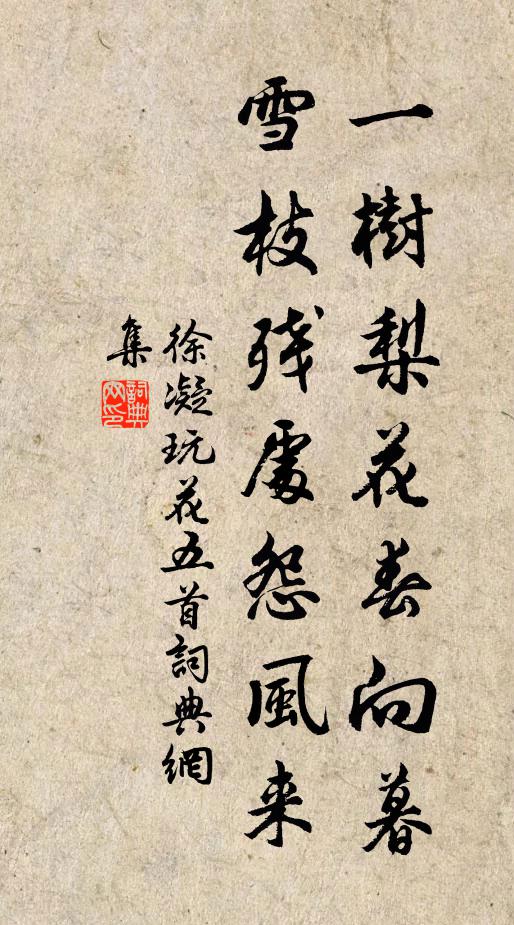 一樹梨花春向暮
雪枝殘處怨風来
徐凝玩花五首詞典網
集
詞典
网印